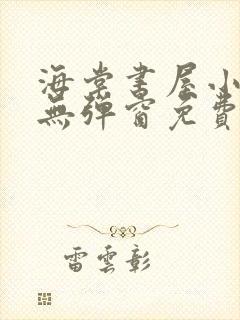 海棠書屋小
無彈窗免費
雷雲彰